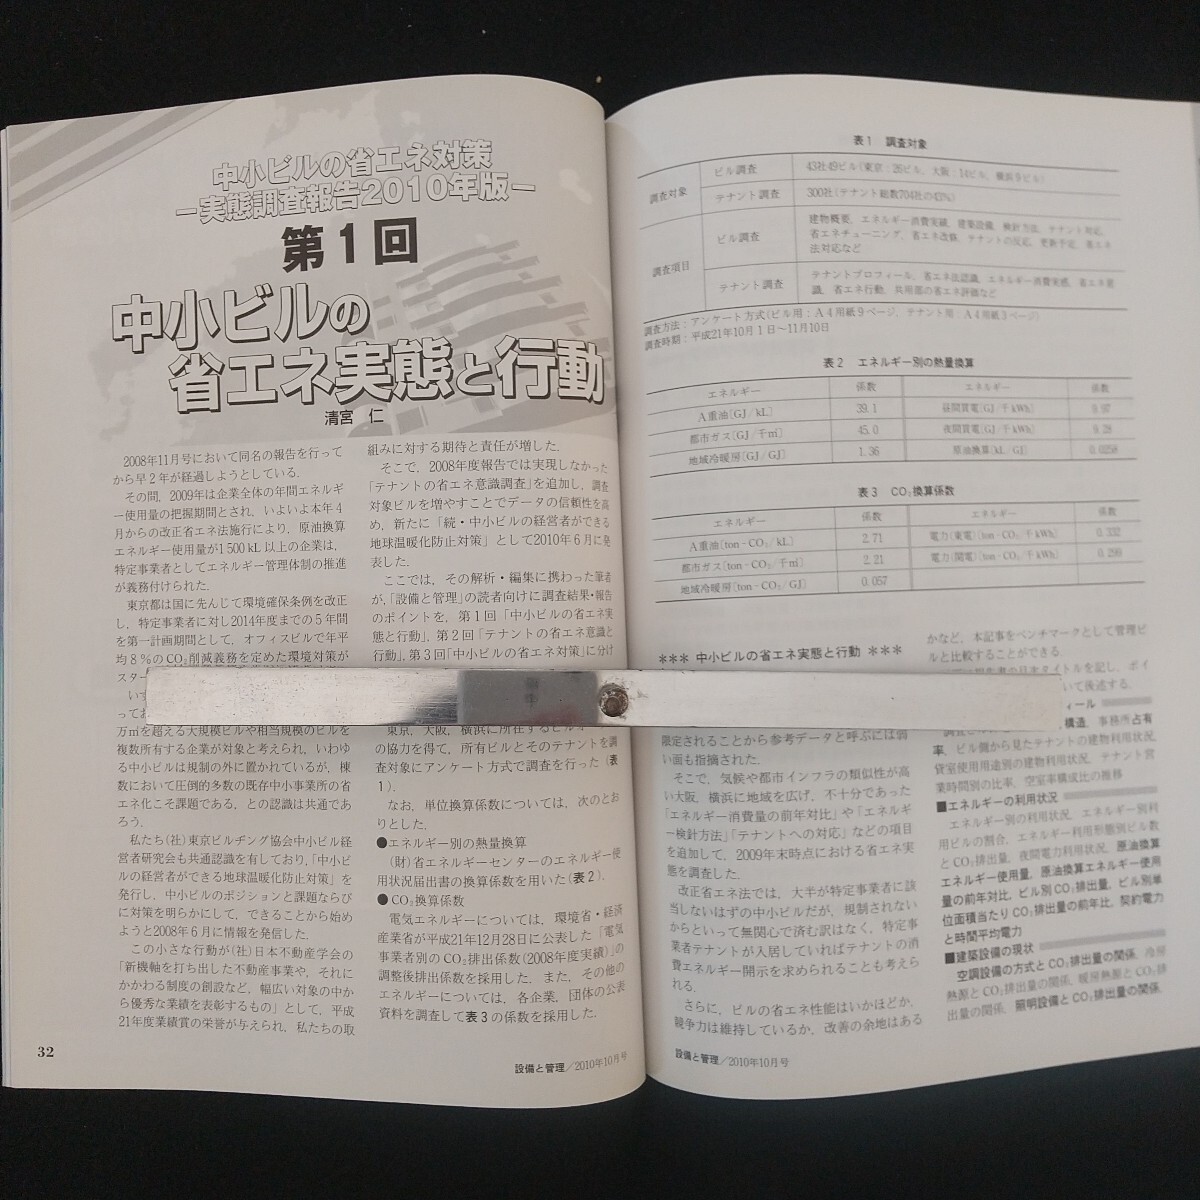 中小ビルの省エネ対策
−実態調査報告2010年版−
第1回
中小ビルの
省エネ実態と行動
清宮　仁
2008年11月号において同名の報告を行って
から早2年が経過しようとしている.
その間, 2009年は企業全体の年間エネルギ
ー使用量の把握期間とされ, いよいよ本年4
月からの改正省エネ法施行により, 原油換算
エネルギー使用量が1500 kL以上の企業は,
特定事業者としてエネルギー管理体制の推進
が義務付けられた.
東京都は国に先んじて環境確保条例を改正
し, 特定事業者に対し2014年度までの5年間
を第一計画期間として, オフィスビルで年平
均8％のCO₂削減義務を定めた環境対策が
スター
いず
ってお
万㎡を超える大規模ビルや相当規模のビルを
複数所有する企業が対象と考えられ, いわゆ
る中小ビルは規制の外に置かれているが, 棟
数において圧倒的多数の既存中小事業所の省
エネ化こそ課題である, との認識は共通であ
ろう.
私たち(社)東京ビルヂング協会中小ビル経
営者研究会も共通認識を有しており,「中小ビ
ルの経営者ができる地球温暖化防止対策」を
発行し, 中小ビルのポジションと課題ならび
に対策を明らかにして, できることから始め
ようと2008年6月に情報を発信した.
この小さな行動が(社)日本不動産学会の
「新機軸を打ち出した不動産事業や, それに
かかわる制度の創設など, 幅広い対象の中か
ら優秀な業績を表彰するもの」として, 平成
21年度業績賞の栄誉が与えられ, 私たちの取
組みに対する期待と責任が増した.
そこで, 2008年度報告では実現しなかった
「テナントの省エネ意識調査」を追加し, 調査
対象ビルを増やすことでデータの信頼性を高
め, 新たに「続・中小ビルの経営者ができる
地球温暖化防止対策」として2010年6月に発
表した.
ここでは, その解析・編集に携わった筆者
が,「設備と管理」の読者向けに調査結果・報告
のポイントを, 第1回「中小ビルの省エネ実
態と行動」, 第2回「テナントの省エネ意識と
行動」, 第3回「中小ビルの省エネ対策」に分け
東京, 大阪, 横浜に所在するビルオー
の協力を得て, 所有ビルとそのテナントを調
査対象にアンケート方式で調査を行った(表
1).
なお, 単位換算係数については, 次のとお
りとした.
●エネルギー別の熱量換算
(財)省エネルギーセンターのエネルギー使
用状況届出書の換算係数を用いた(表2).
●CO₂換算係数
電気エネルギーについては, 環境省・経済
産業省が平成21年12月28日に公表した「電気
事業者別のCO₂排出係数(2008年度実績)」の
調整後排出係数を採用した. また, その他の
エネルギーについては, 各企業, 団体の公表
資料を調査して表3の係数を採用した.
32
設備と管理／2010年10月号
表1　調査対象
調査対象　ビル調査　43社49ビル(東京：26ビル, 大阪：14ビル, 横浜9ビル)
テナント調査　300社(テナント総数704社の43%)
調査項目　ビル調査　建物概要, エネルギー消費実績, 建築設備, 検針方法, テナント対応,
省エネチューニング, 省エネ改修, テナントの反応, 更新予定, 省エネ
法対応など
テナント調査　テナントプロフィール, 省エネ法認識, エネルギー消費実感, 省エネ意
識, 省エネ行動, 共用部の省エネ評価など
調査方法：アンケート方式(ビル用：A4用紙9ページ, テナント用：A4用紙3ページ)
調査時期：平成21年10月1日〜11月10日
表2　エネルギー別の熱量換算
エネルギー　係数　エネルギー　係数
A重油〔GJ/kL〕　39.1　昼間買電〔GJ/千kWh〕　9.97
都市ガス〔GJ/千㎥〕　45.0　夜間買電〔GJ/千kWh〕　9.28
地域冷暖房〔GJ/GJ〕　1.36　原油換算〔kL/GJ〕　0.0258
表3　CO₂換算係数
エネルギー　係数　エネルギー　係数
A重油〔ton-CO₂/kL〕　2.71　電力(東電)〔ton-CO₂/千kWh〕　0.332
都市ガス〔ton-CO₂/千㎥〕　2.21　電力(関電)〔ton-CO₂/千kWh〕　0.299
地域冷暖房〔ton-CO₂/GJ〕　0.057
＊＊＊ 中小ビルの省エネ実態と行動 ＊＊＊
限定されることから参考データと呼ぶには弱
い面も指摘された.
そこで, 気候や都市インフラの類似性が高
い大阪, 横浜に地域を広げ, 不十分であった
「エネルギー消費量の前年対比」や「エネルギ
ー検針方法」「テナントへの対応」などの項目
を追加して, 2009年末時点における省エネ実
態を調査した.
改正省エネ法では, 大半が特定事業者に該
当しないはずの中小ビルだが, 規制されない
からといって無関心で済む訳はなく, 特定事
業者テナントが入居していればテナントの消
費エネルギー開示を求められることも考えら
れる.
さらに, ビルの省エネ性能はいかほどか,
競争力は維持しているか, 改善の余地はある
かなど, 本記事をベンチマークとして管理ビ
ルと比較することができる.
タイトルを記し, ポイ
いて後述する.
ィール
構造, 事務所占有
率, ビル側から見たテナントの建物利用状況,
貸室使用用途別の建物利用状況, テナント営
業時間別の比率, 空室率構成比の推移
■エネルギーの利用状況
エネルギー別の利用状況, エネルギー別利
用ビルの割合, エネルギー利用形態別ビル数
とCO₂排出量, 夜間電力利用状況, 原油換算
エネルギー使用量, 原油換算エネルギー使用
量の前年対比, ビル別CO₂排出量, ビル別単
位面積当たりCO₂排出量の前年比, 契約電力
と時間平均電力
■建築設備の現状
空調設備の方式とCO₂排出量の関係, 冷房
熱源とCO₂排出量の関係, 暖房熱源とCO₂排
出量の関係, 照明設備とCO₂排出量の関係,
設備と管理／2010年10月号